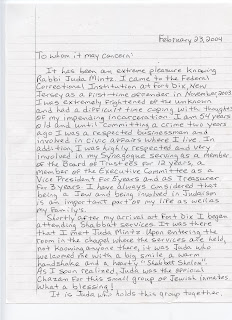 February 23, 2004
To whom it may concern:
It has been an extreme pleasure knowing
Rabbi Juda Mintz. I came to the Federal
Correctional Institution at Fort Dix, New
Jersey as a first-time offender in November, 2003.
I was extremely frightened of the unknown
and had a difficult time coping with thoughts
of my impending incarceration. I am 54 years
old and until committing a crime two years
ago I was a respected businessman and
involved in civic affairs where I live. In
addition, I was highly respected and very
involved in my Synagogue serving as a member
of the Board of Trustees for 12 years, a
member of the Executive Committee as a
Vice President for 5 years and as Treasurer
for 3 years. I have always considered that
being a Jew and being involved in Judaism
is an important part of my life as well as
my family's.
Shortly after my arrival at Fort Dix I began
attending Shabbat services. It was there
that I met Juda Mintz. Upon entering the
room in the chapel where the services are held,
not knowing anyone there, it was Juda who
welcomed me with a big smile, a warm
handshake and a hearty "Shabbat Shalom".
As I soon realized, Juda was the official
Chazan for this small group of Jewish inmates.
What a blessing!
It is Juda who holds this group together.